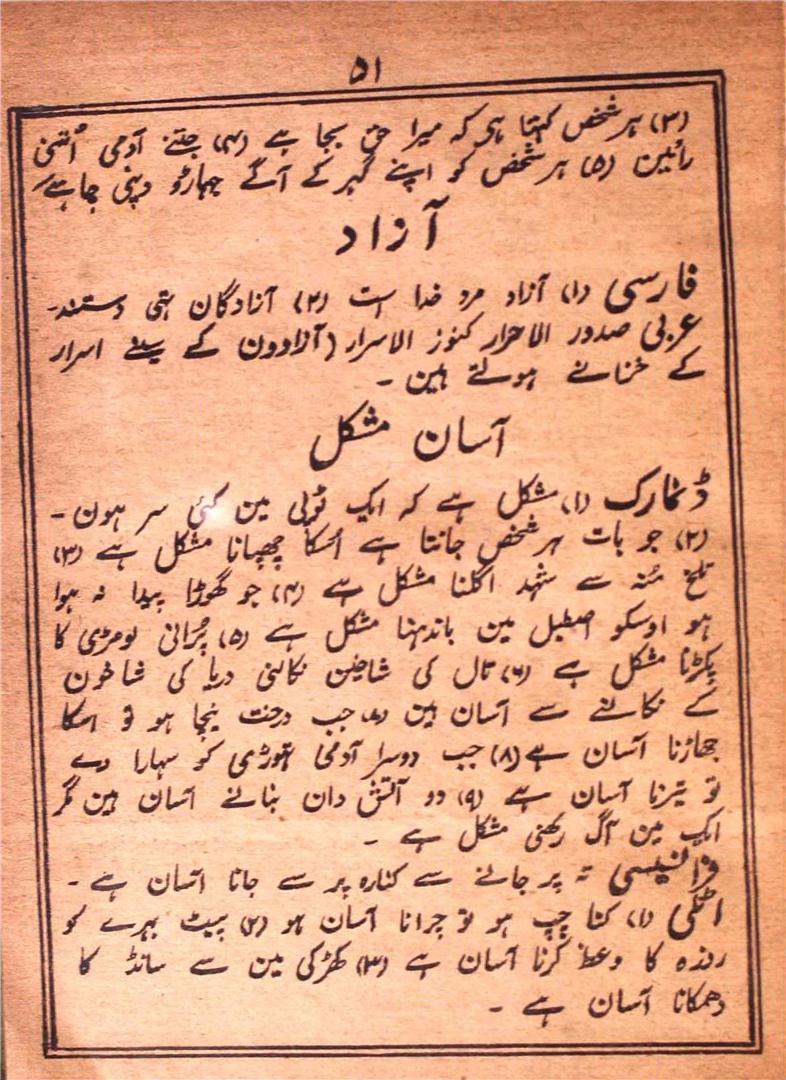 ۵۱
(۳) ہر شخص کہتا ہی کہ میرا حق بجا ہے (۴) جتنے آدمی اُتنی
رائین (۵) ہر شخص کو اپنے گہر کے آگے جہاڑو دینی چاہیے
آزاد
فارسی (۱) آزاد مرد خدا است (۲) آزادگان تہی دستند۔
عربی صدور الاحرار کنوز الاسرار (آزادون کے سینے اسرار
کے خزانے ہوتے ہین ۔
آسان مشکل
ڈنمارک (۱) مشکل ہے کہ ایک ٹوپی مین کئی سر ہون ۔
(۲) جو بات ہر شخص جانتا ہے اُسکا چھپانا مشکل ہے (۳)
تلخ مُنہ سے شہد اگلنا مشکل ہے (۴) جو گھوڑا پیدا نہ ہوا
ہو اوسکو اصطبل مین باندہنا مشکل ہے (۵) پُرانی لومڑی کا
پکڑنا مشکل ہے (۶) تال کی شاخین نکالنی دریا کی شاخون
کے نکالنے سے آسان ہین (۷) جب درخت نیچا ہو تو اسکا
جھاڑنا آسان ہے (۸) جب دوسرا آدمی ٹھوڑی کو سہارا دے
تو تیرنا آسان ہے (۹) دو آتش دان بنانے آسان ہین مگر
ایک مین آگ رکھنی مشکل ہے ۔
فرانسیسی تہ پر جانے سے کنارہ پر سے جانا آسان ہے ۔
اٹلی (۱) کتا چپ ہو تو چرانا آسان ہو (۲) پیٹ بہرے کو
روزہ کا وعظ کرنا آسان ہے (۳) کھڑکی مین سے سانڈ کا
دھمکانا آسان ہے ۔